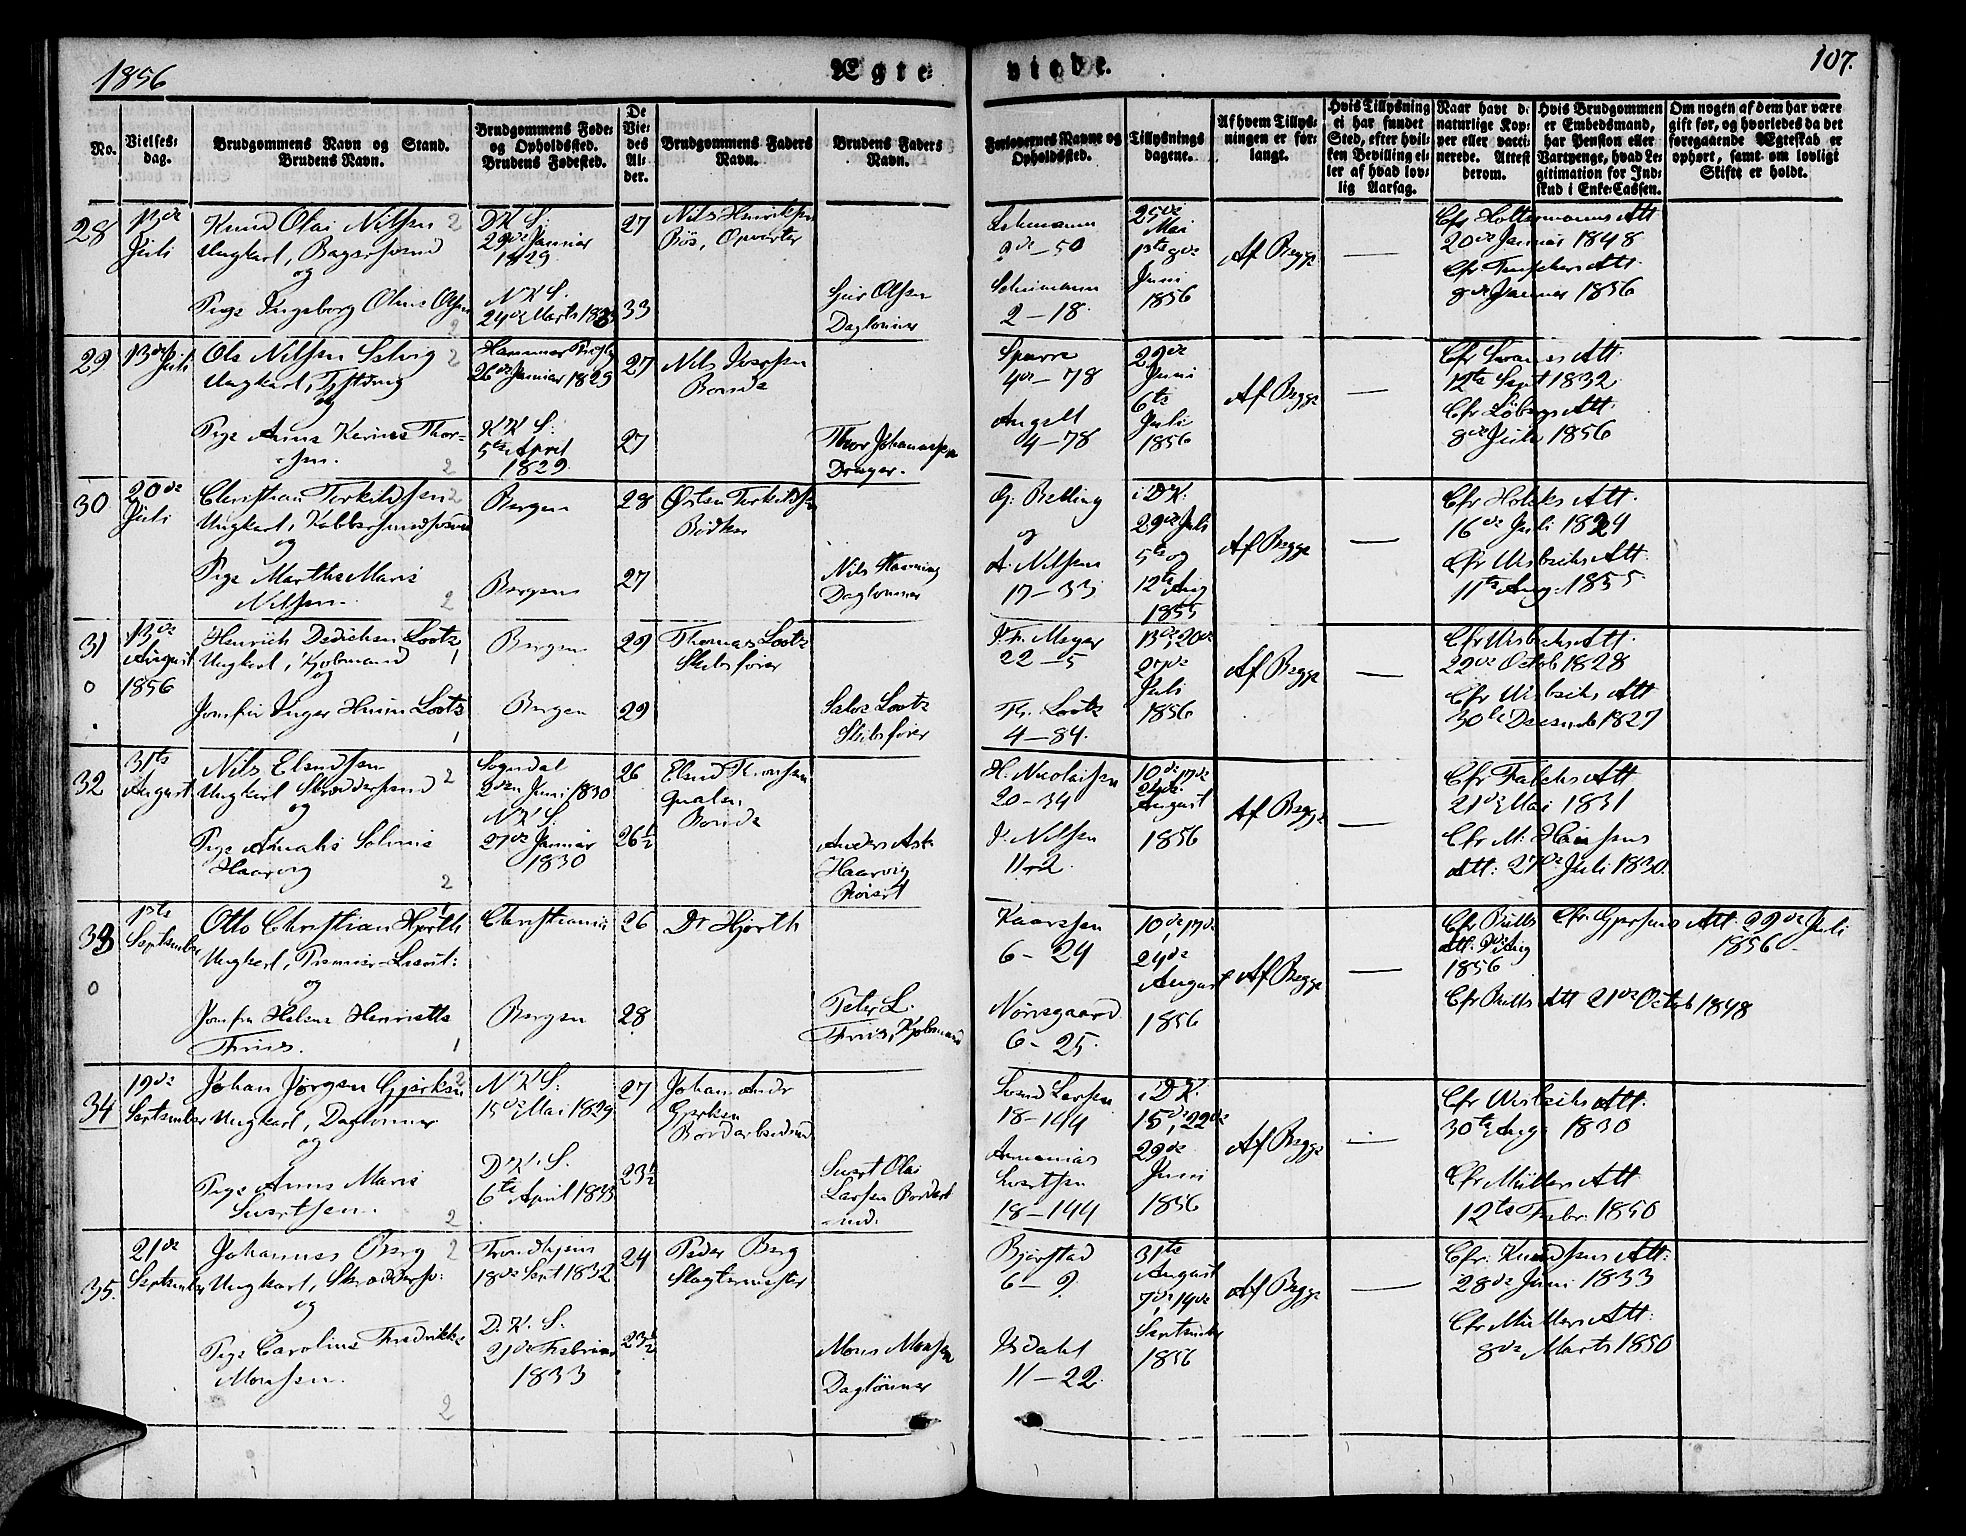 1856
Ægte
viede.
107.
No.
Vielses-
dag.
Brudgommens Navn og Stand.
Brudens Navn.
Brudgommens Føde-
og Opholdssted.
Brudens Fødested.
De
Vie-
des
Al-
der.
Brudgommens Faders
Navn.
Brudens Faders
Navn.
Forlovernes Navne og
Opholdssted.
Tillysnings
dagene.
Af hvem Tillys-
ningen er for-
langt.
Hvis Tillysning
ei har fundet
Sted, efter hvil-
ken Bevilling el-
ler af hvad lov-
lig Aarsag.
Naar havt de
naturlige Kop-
per eller vacci-
nerede. Attest
derom.
Hvis Brudgommen
er Embedsmand,
har Pension eller
Vartpenge, hvad Le-
gitimation for Ind-
skud i Enke-Cassen.
Om nogen af dem har være
gift før, og hvorledes da det
foregaaende Ægteskab er
ophørt, samt om lovligt
Skifte er holdt.
28
13de
Juli
Knud Olai Nilsen 2
Ungkarl,
og
Pige Ingeborg Oline Olsen
2
D. K. S:
29de Januar
1829
N. K. S.
24de Marts 1823
27
33
Nils Henriksen
Bös, Opvarter
Geir Olsen
Daglønner
9de - 50
2 - 18
25de
Mai
1ste 8de
Juni
1856
Af Begge
—
Cfr Holtermanns Att
20de Januar 1848
Att
8de Januar 1856
29
13de
Juli
Ole Nilsen Solvig 2
Ungkarl,
og
Pige Anne Karine Thor-
sen.
2
Hammer Prgld
26de Januar 1829
K. K. S:
5te April
1829.
27
27
Nils Iversen
Bonde
Thor Johannessen
Drager.
Sparre
4de - 78
Angelt
4 - 78
22de
Juni
6te
Juli
1856
Af Begge
—
Att.
12te Sept 1832
Cfr Löbergs Att.
8de Juli 1856
30
20de
Juli
Christian Terkildsen 2
Ungkarl, Kobbersmedsvend
og
Pige Marthe Marie
Nilsen.
2
Bergen
Bergen
28
27
Østen Terkildsen
Bödker
Nils Henning
Daglønner
G: Relling
og
A. Nilsen
17 - 33
i D. K.
29de Juli
5te og
12te Aug
1855
Af Begge
—
Cfr Holcks Att.
16de Juli 1829
Cfr Wisbechs Att
11te Aug. 1855.
31
13de
August
1856
Henrich Dedichen Lootz
Ungkarl, Kjøbmand 1
og
Jomfru Inger Lootz
1
Bergen
Bergen
29
29
Thomas Lootz
Skibsfører
Lootz
Skibsfører
J. Fr. Meyer
22 - 5
Th. Lootz
4 - 84.
13de, 20de
27de
Juli
1856
Af Begge
—
Cfr Wisbechs Att.
22de Octob 1828
Cfr Wisbechs Att
30te Decemb 1827
32
31te
August
Nils Elendsen
Ungkarl Skræddersvend 2
og
Pige Amalie Salomie
Haarvig
2
Sogndal
2den Juni 1830
N. K. S.
27de Januar
1830
26
26½
Elend
Qvalen,
Bonde
Anders Ask
Haarvig
H. Nicolaisen
20 - 34
J. Nilsen
11 - 2.
10de, 17de
24de
August
1856
Af Begge
—
Cfr Falchs Att
21de Mai 1831
Cfr M: Hansens
Att: 27de Juli 1830.
33
1ste
September
Otto Christian Hjorth 1
Ungkarl, Premier-Lieut:
og
Jomfru Helene Henriette
Friis.
1
Christiania
Bergen
26
28
Dr Hjorth
Peter L.
Friis, Kjøbmand
Kaarssen
6 - 24
Nörregaard
6 - 25.
10de, 17de
24de
August
1856
Af Begge
—
Cfr Bulls
Att. 9de Aug
1856
Cfr. Gjersens Att. 29de Juli
1856
Cfr Bulls Att 21de Octob 1848
34
19de
September
Johan Jörgen Gjerksen 2
Ungkarl, Daglønner
og
Pige Anne Marie
Sivertsen.
2
N. K. S.
15de Mai 1829
D. K. S.
6te April 1833
27
23½
Johan Andr
Gjerksen
Bordarbeidsmd
Sivert Olai
Larsen Bordarb
md.
Svend Larsen
18 - 144
Ananias
Sivertsen
18 - 144
i D. K.
15de, 22de
29de
Juni
1856
Af Begge
—
Cfr Wisbechs Att.
30te Aug 1830
Cfr Müllers Att
12te Febr. 1850
35.
21de
September
Johannes Berg 2
Ungkarl, Skræddersv:
og
Pige Caroline Fredrikke
Monsen.
2
Trondhjem
18de Sept 1832
D. K. S.
21de Februar
1833
24
23½
Peder Berg
Slagtermester
Mons Monsen
Daglönner
Bjerstad
6 - 9
Isdahl
11 - 22.
31te
August
7de, 14de
September
1856
Af Begge
—
Cfr. Knudsens Att:
28de Juni 1833
Cfr Müllers Att:
8de Marts 1850